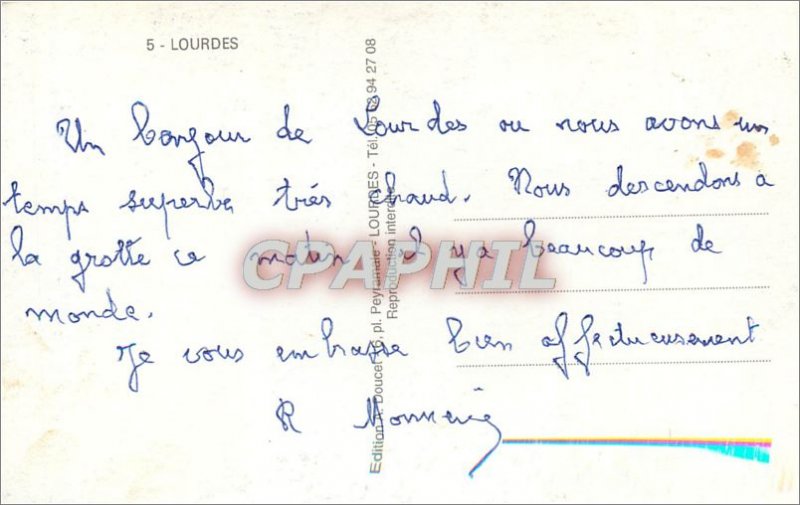 5 - LOURDES
Un bonjour de Lourdes ou nous avons un
temps superbe très chaud. Nous descendons a
la grotte ce matin il y a beaucoup de
monde.
Je vous embrasse bien affectueusement
R
Edition A. Doucet, pl. Peyramale - LOURDES - Tél. 94 27 08
Reproduction interdite
CPAPHIL